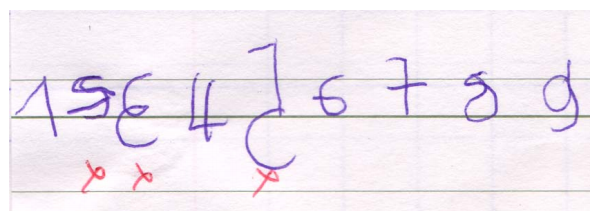 1 4 6 7 8 9
x x x